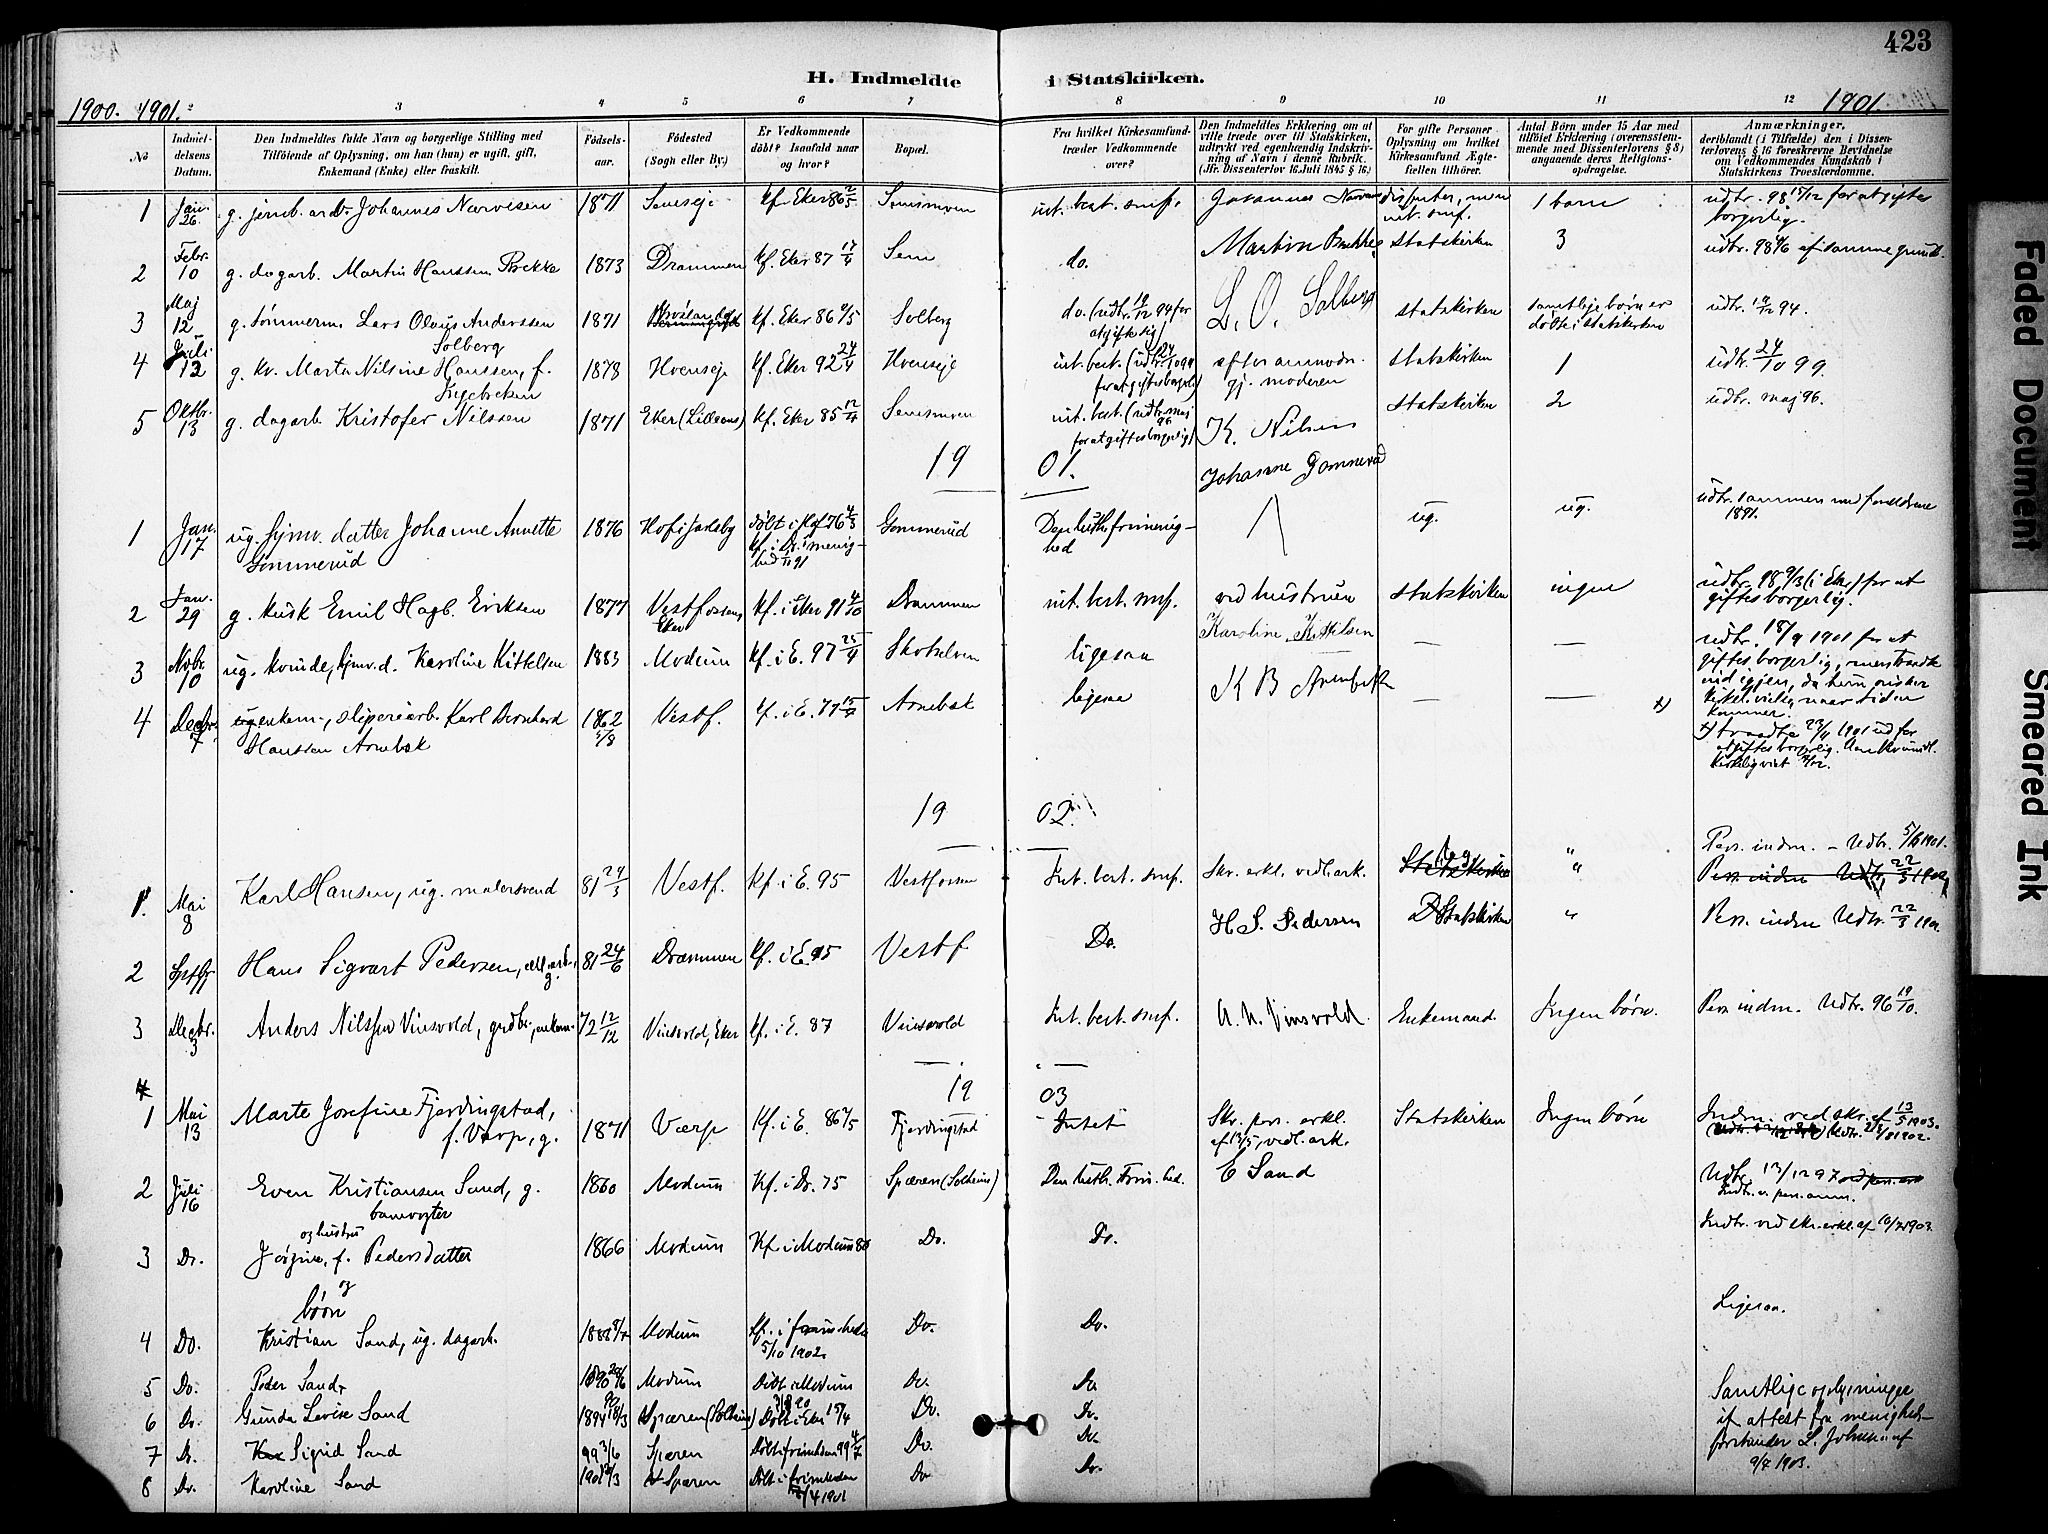 423
H. Indmeldte i Statskirken.
1900. 1901. 1901.
2 3 4 5 6 7 8 9 10 11 12
No
Indmel-
delsens
Datum.
Den Indmeldtes fulde Navn og borgerlige Stilling med
Tilføiende af Oplysning, om han (hun) er ugift, gift,
Enkemand (Enke) eller fraskilt.
Fødsels-
aar.
Fødested
(Sogn eller By.)
Er Vedkommende
døbt? Isaafald naar
og hvor?
Bopæl.
Fra hvilket Kirkesamfund
træder Vedkommende
over?
Den Indmeldtes Erklæring om at
ville træde over til Statskirken,
udtrykt ved egenhændig Indskriv-
ning af Navn i denne Rubrik.
(Jfr. Dissenterlov 16 Juli 1845 § 16.)
For gifte Personer
Oplysning om hvilket
Kirkesamfund Ægte-
fællen tilhører.
Antal Børn under 15 Aar med
tilføiet Erklæring (overensstem-
mende med Dissenterlovens § 8)
angaaende deres Religions-
opdragelse.
Anmærkninger,
deriblandt (i Tilfælde) den i Dissen-
terlovens § 16 foreskrevne Bevidnelse
om Vedkommendes Kundskab i
Statskirkens Troeslærdomme.
1 Jan. 26. g. jernb. arb. Johannes Narvesen 1871 kf. Eker 86 2/5 int. best. smf. 1 barn udtr. 98 15/12 for at giftes
borgerlig.
2 Febr. 10 g. dagarb. Martin Hanssen Brekke 1873 Drammen kf. Eker 87 17/4 Sem do. Martin Brekke statskirken 3 udtr. 98 af samme grund.
3 Maj 12 g. tømmerm. Lars Olaus Anderssen
Solberg 1871 kf. Eker 86 Solberg do. (udtr. 19/12 94 for
at gifte sig) L. O. Solberg statskirken samtlige børn er
døbte i statskirken udtr. 19/12 94.
4 Juli 12 g. kv. Marta Nilsine Hanssen, f. 1878 Hvenseje kf. Eker 92 24/4 Hvenseje int. best. (udtr. 24/10 99
for at giftes borgerlig) efter anmodn.
gj. moderen statskirken 1 udtr. 24/10 99.
5 Oktbr. 13 g. dagarb. Kristofer Nilssen 1871 Eker kf. Eker 85 12/4 int. best. (udtr. maj
96
for at giftes borgerlig) K. Nilsen statskirken 2 udtr. maj 96.
19 01.
Johanne Gommerud
1 Jan. 17 ug. hjmv. datter Johanne Annette
Gommerud 1876 Hof i Jarlsby døbt i Hof 76 4/3
kf. i Dr. menig-
hed 91 Gommerud Den luth. frimenig-
hed ug. ug. udtr. sammen med forældrene
1891.
2 Jan. 29 g. kusk Emil Hagb. Eriksen 1877 Vestfossen,
Eker kf. i Eker 91 4/10 Drammen int. best. smf. ved hustruen statskirken ingen udtr. 98 9/3 (i Eker) for at
giftes borgerlig.
3 Novbr. 10 ug. kvinde, hjmv. d. Karoline Kittelsen 1883 Modum kf. i E. 97 25/4 Skotselven ligesaa Karoline Kittilsen — — udtr. 18/9 1901 for at
giftes borgerlig, men traadte
ind igjen, da hun ønsker
kirkel. vielse, naar tiden
kommer.
4 Decbr. 7 enkem., sliperiarb. Karl Bernhard
Hanssen Arnebæk 1862 5/8 Vestf. kf. i E. 77 15/4 Arnebæk ligesaa K B Arnebek — — x)
x) traadte 23/4 1901 ud for
at giftes borgerlig.
19 02.
1. Mai 8 Karl Hansen, ug. malersvend 81 24/3 Vestf. kf. i E. 95 Vestfossen Int. best. smf. Skr. erkl. vedl. ark. ug Statskirken " Pers. indm. – Udtr. 5/6 1901.
Pers. indm Udtr. 22/3 1902
2 Septbr Hans Sigvart Pedersen, 81 24/6 Drammen kf. i E. 95 Vestf Do. H. S. Pedersen Statskirken " Pers. indm Udtr. 22/3
3 Decbr. 3 Anders Nilssøn Vinsvold, grdbr., enkem. 72 12/12 Vinsvold, Eker kf. i E. 87 Vinsvold Int. best. smf. A. N. Vinsvold. Enkemand. Ingen børn. Pers. indm. Udtr. 96 19/10.
19 03
1 Mai 13 Marte Josefine Fjerdingstad,
f. Værp, g. 1871 Værp Kf. i E. 86 Fjerdingstad Intet Skr. pers. erkl.
af 13/5, vedl. ark. Statskirken Ingen børn Indm. ved skr. af 13/5 1903.
2 Juli 16 Even Kristiansen Sand, g.
banevogter 1860 Modum Kf. i Dr. 75 Spæren (Solheim) Den luth. Frim.hed. E Sand Udtr. 13/12 97
Indtr. er pers. anm.
3 Do. og hustru
Jørgine, f. Pedersdatter 1866 Modum Kf. i Modum 80 Do. Do. Indtr. ved skr. erkl. af 10/7 1903
og
børn
4 Do. Kristian Sand, ug. dagarb. 1888 Modum kf. i frim.heden
5/10 1902. Do. Do. Ligesaa.
5 Do. Peder Sand, 1890 20/6 Modum Døbt i Modum Do. Do
6 Do. Gunda Lovise Sand 1894 18/3 Spæren (Solheim) Døbt i Eker 15/4 Do. Do.
7 Do. Sigrid Sand 99 3/6 Spæren Døbt i frimheden 99 4/7 Do Do.
8 Do. Karoline Sand 1901 Spæren Døbt i frimheden
/4 1901 Do Do.
Samtlige oplysninger
if. attest fra menigheds-
forstander L. Johnsen af
9/7 1903.
Faded Document
Smeared Ink